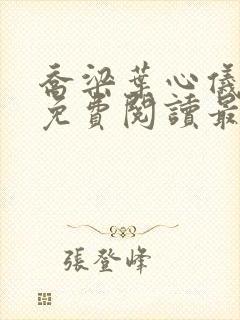 喬梁葉心儀
免費閱讀最
張登峰